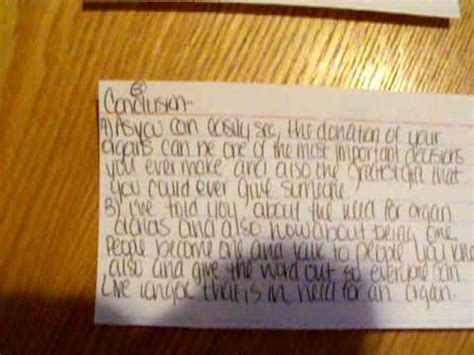 Conclusion-
A) As you can easily see, the donation of your
organs can be one of the most important decisions
you ever make and also the greatest gift that
you could ever give someone.
B) I've told you about the need for organ
donors and also how about being one.
People become one and talk to people you know
also and give the word out so everyone can
Live longer that is in need for an organ.